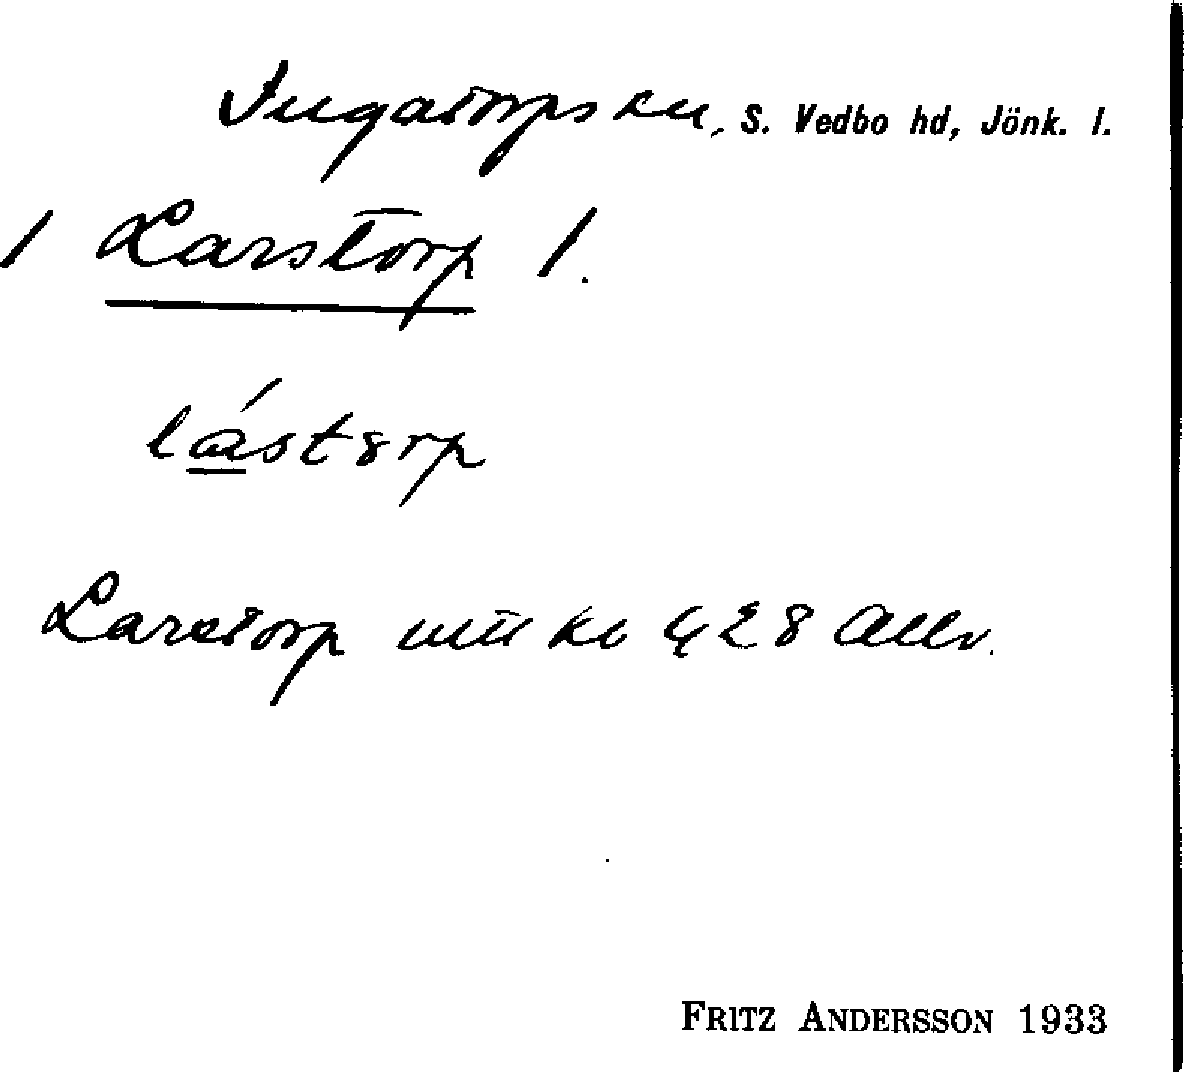 Ingatorps sn, S. Vedbo hd, Jönk. l.
/ Larstorp /.
lástorp
Larstorp 28 Allv.
FRITZ ANDERSSON 1933